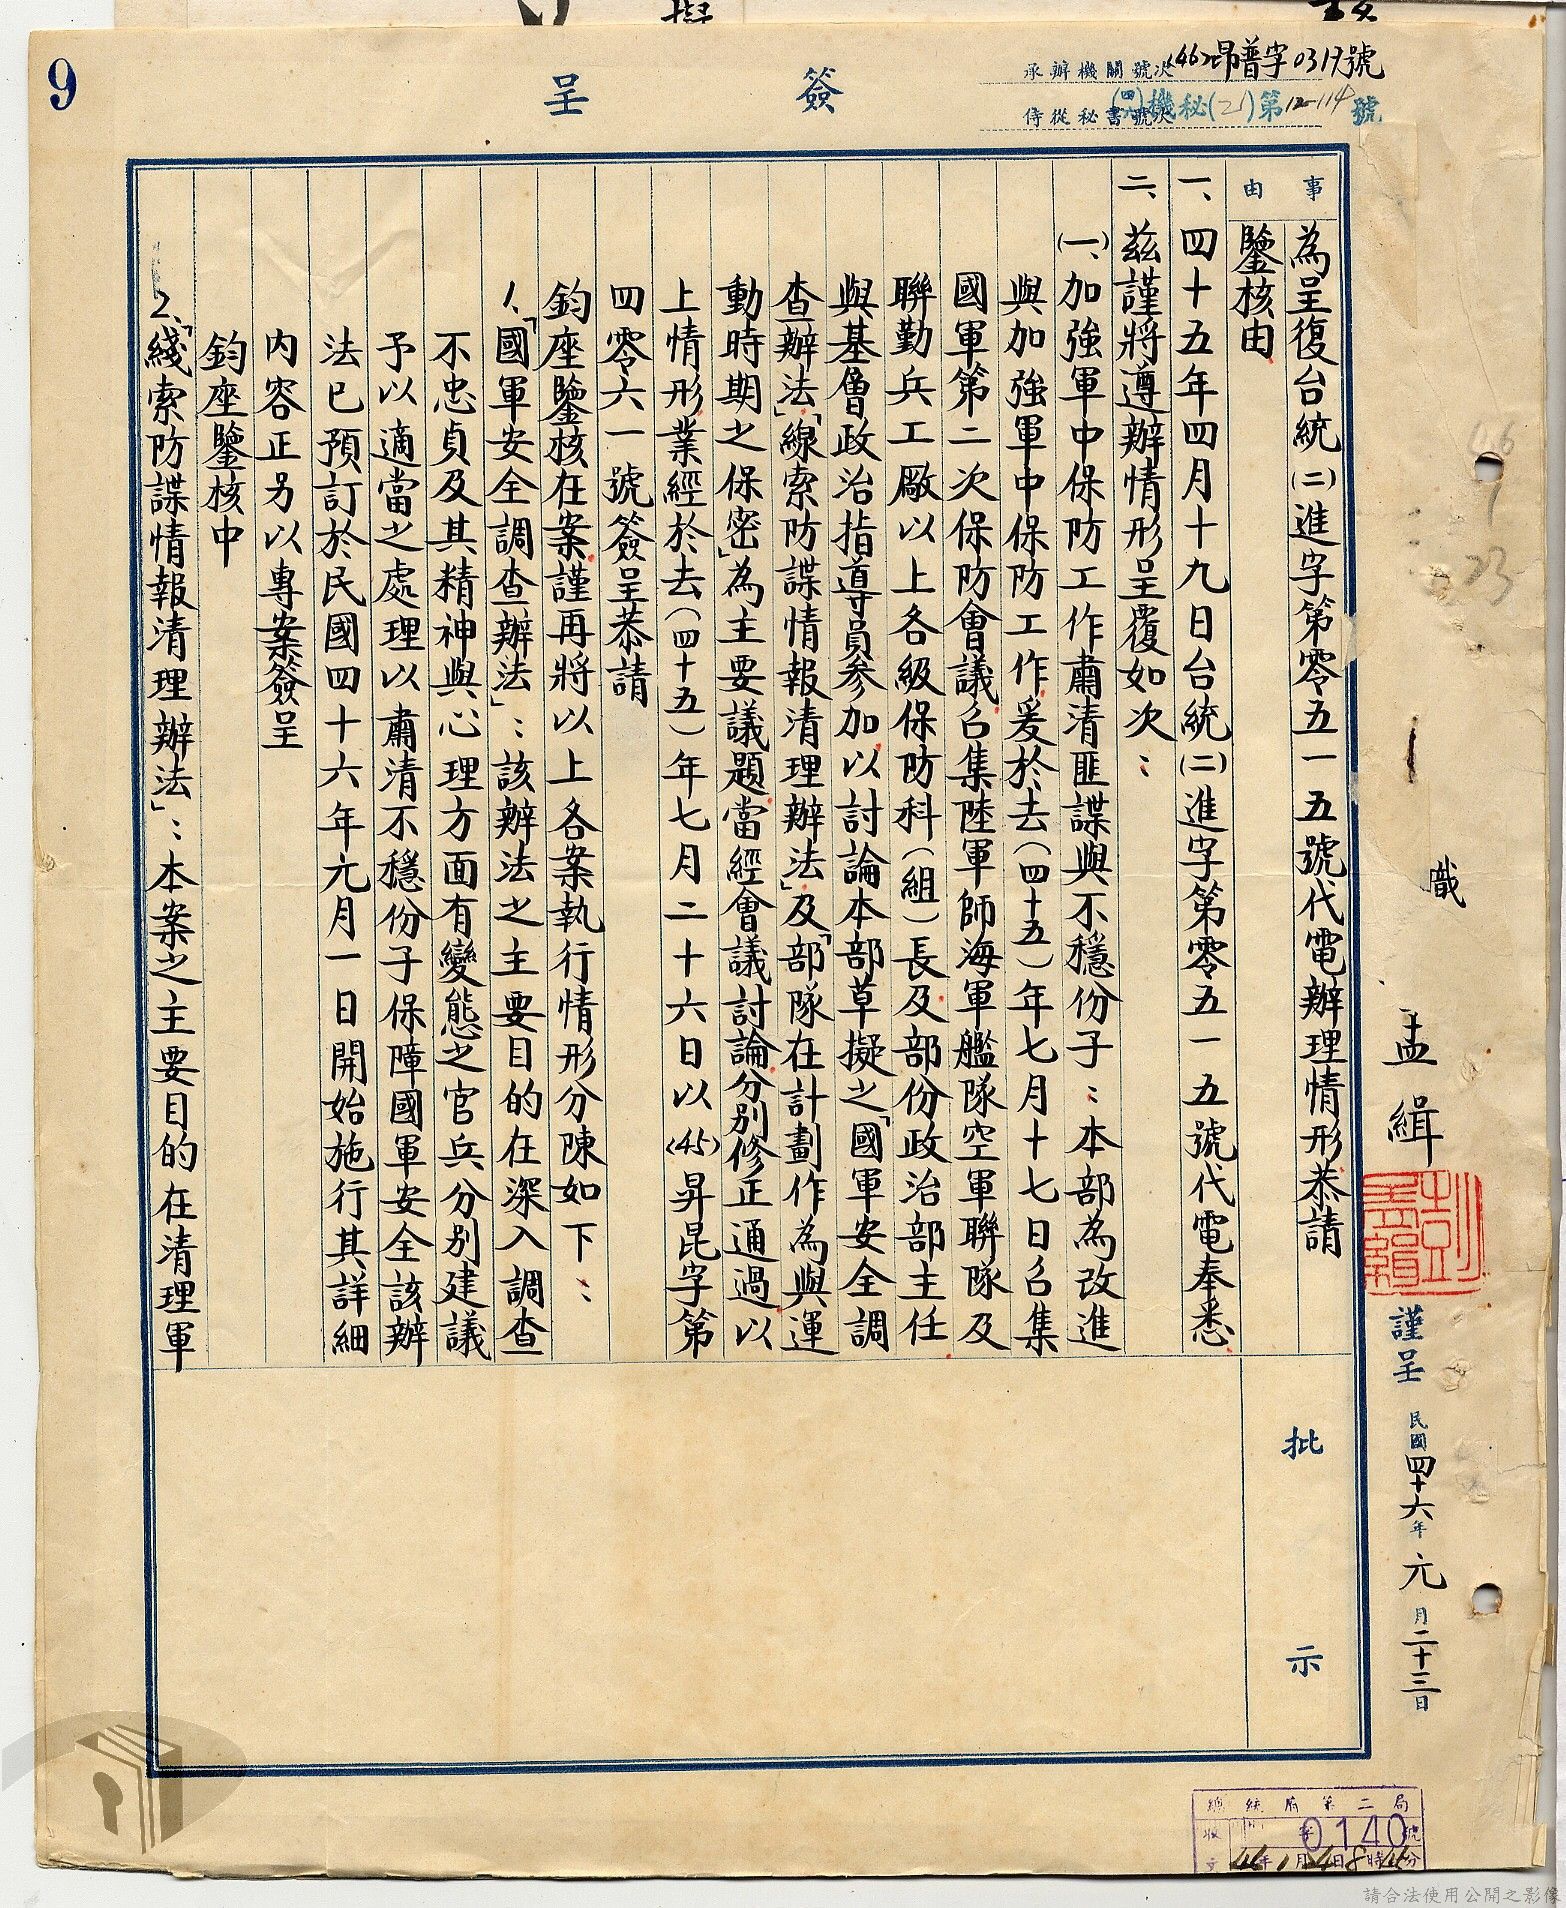 9
簽呈
承辦機關號次(46)昂普字0317號
侍從秘書號次(四六)機秘(乙)第12-114號
事由
為呈復台統㈡進字第零五一五號代電辦理情形恭請
鑒核由
一、四十五年四月十九日台統㈡進字第零五一五號代電奉悉
二、茲謹將遵辦情形呈覆如次:
㈠、加強軍中保防工作肅清匪諜與不穩份子:本部為改進
與加強軍中保防工作爰於去(四十五)年七月十七日召集
國軍第二次保防會議召集陸軍師海軍艦隊空軍聯隊及
聯勤兵工廠以上各級保防科(組)長及部份政治部主任
與基層政治指導員參加以討論本部草擬之「國軍安全調
查辦法」「線索防諜情報清理辦法」及「部隊在計劃作為與運
動時期之保密」為主要議題當經會議討論分別修正通過以
上情形業經於去(四十五)年七月二十六日以(45)昇昆字第
四零六一號簽呈恭請
鈞座鑒核在案謹再將以上各案執行情形分陳如下:
1、「國軍安全調查辦法」:該辦法之主要目的在深入調查
不忠貞及其精神與心理方面有變態之官兵分別建議
予以適當之處理以肅清不穩份子保障國軍安全該辦
法已預訂於民國四十六年元月一日開始施行其詳細
內容正另以專案簽呈
鈞座鑒核中
2、「綫索防諜情報清理辦法」:本案之主要目的在清理軍
批示
職
孟緝
彭孟緝
謹呈
民國四十六年元月二十三日
總統府第二局
收文 字0140號
46年1月24日8時 分
請合法使用公開之影像